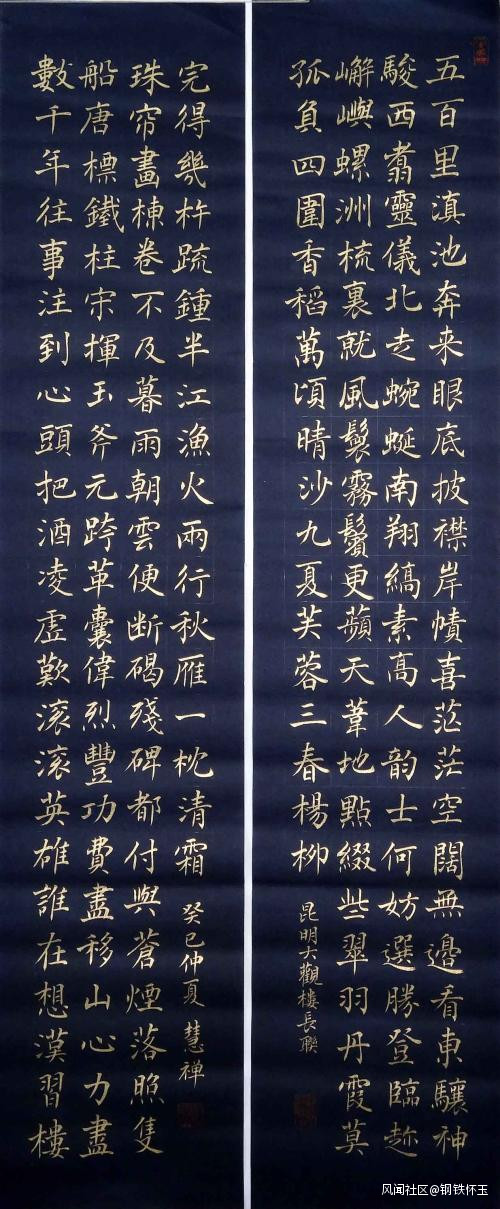 五百里滇池奔来眼底披襟岸幘喜茫茫空闊無邊看東驤神
駿西翥靈儀北走蜿蜒南翔縞素高人韵士何妨選勝登臨趂
嶰嶼螺洲梳裹就風鬟霧鬢更蘋天葦地點綴些翠羽丹霞莫
孤負四圍香稻萬頃晴沙九夏芙蓉三春楊柳
昆明大觀樓長聯
數千年往事注到心頭把酒凌虛歎滾滾英雄誰在想漢習樓
船唐標鐵柱宋揮玉斧元跨革囊偉烈豐功費盡移山心力盡
珠帘畫棟卷不及暮雨朝雲便断碣殘碑都付與蒼煙落照隻
完得幾杵疏鍾半江漁火兩行秋雁一枕清霜
癸巳仲夏 慧禅
风闻社区@钢铁怀玉